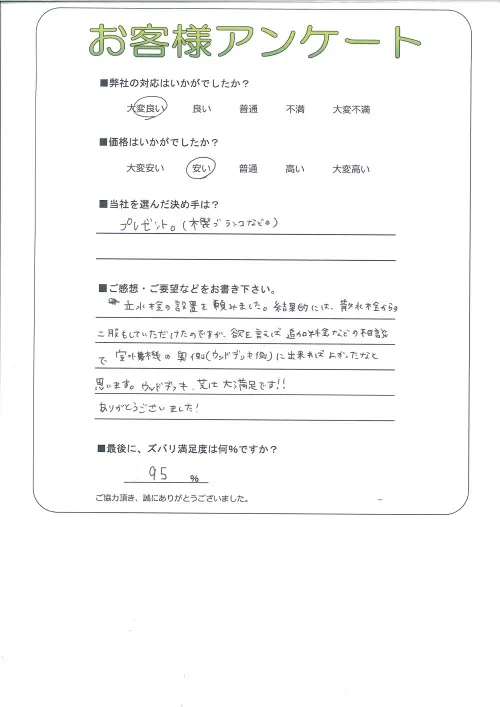 お客様アンケート
■弊社の対応はいかがでしたか？
大変良い 良い 普通 不満 大変不満
■価格はいかがでしたか？
大変安い 安い 普通 高い 大変高い
■当社を選んだ決め手は？
プレゼント。(木製ブランコなど。)
■ご感想・ご要望などをお書き下さい。
立水栓の設置を頼みました。結果的には、散水栓からの
二股もしていただけたのですが、欲を言えば追加料金などの相談
で室外機の奥側(ウッドデッキ側)に出来ればよかったなと
思います。ウッドデッキ、芝は大満足です!!
ありがとうございました!
■最後に、ズバリ満足度は何％ですか？
95 ％
ご協力頂き、誠にありがとうございました。